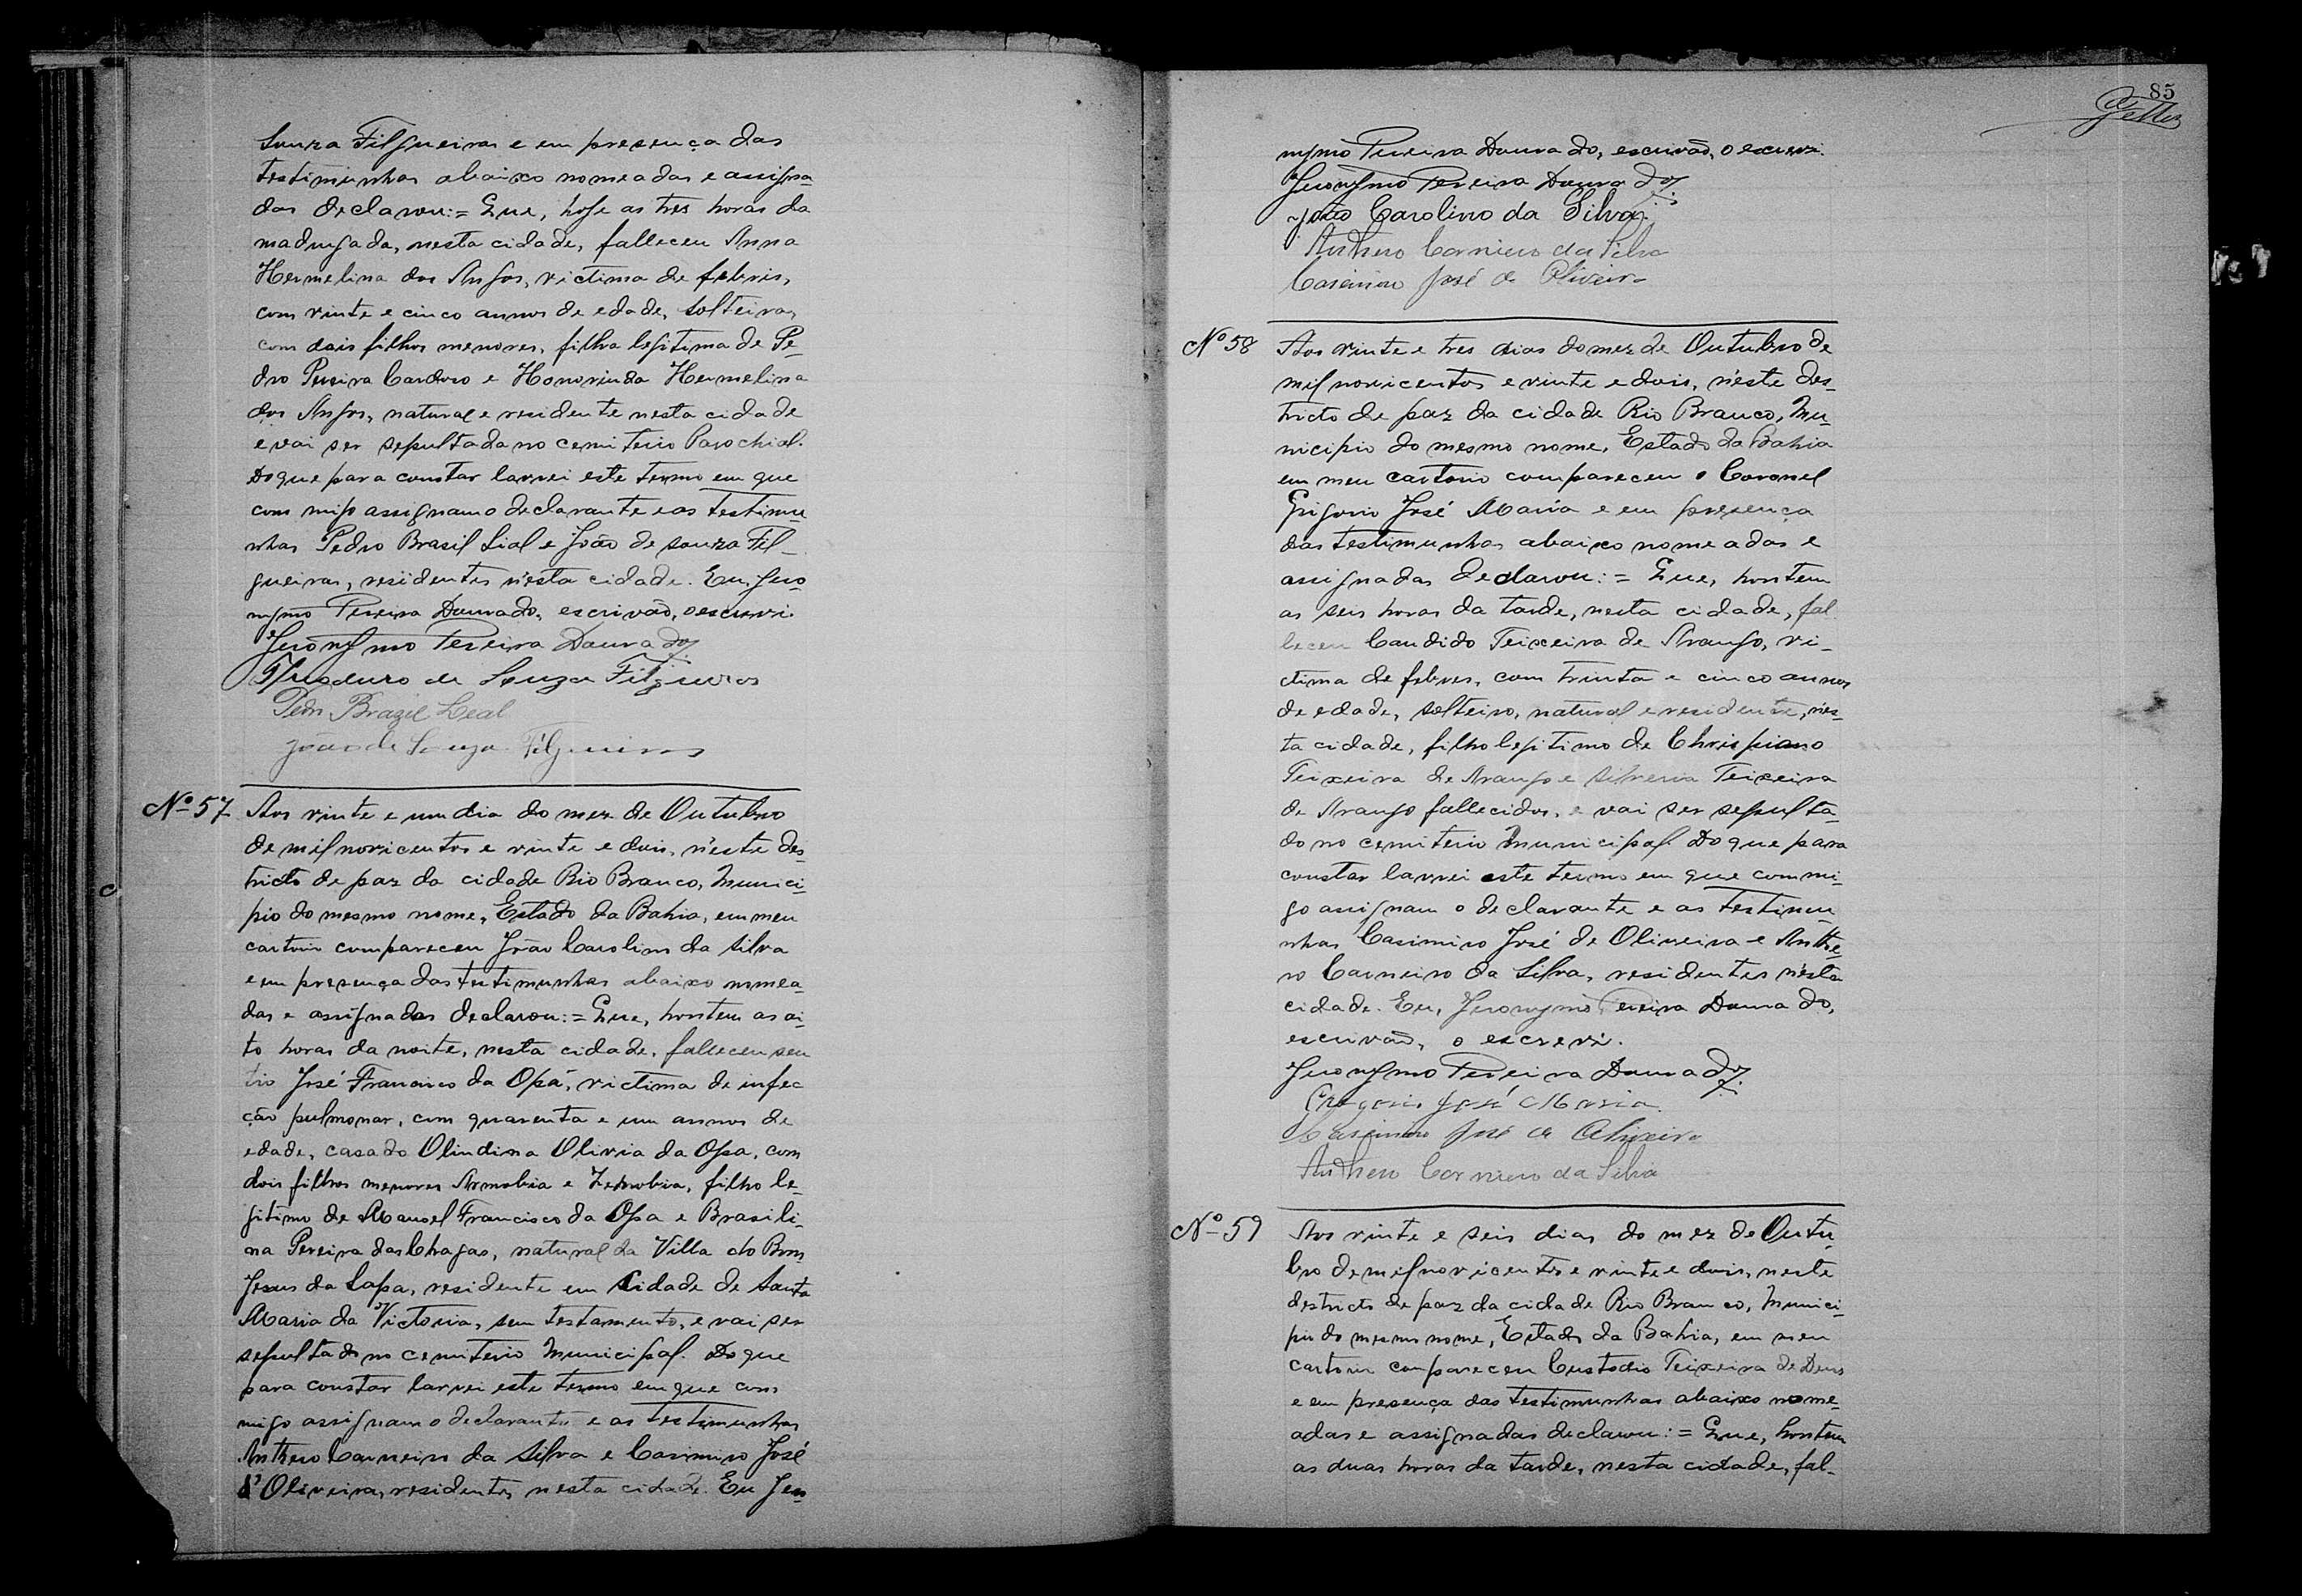 Souza Filgueiras e em presença das
testimunhas abaixo nomeadas e assigna-
das declarou:= Que, hoje as tres horas da
madrugada, nesta cidade, falleceu Anna
Hermelina dos Anjos, victima de febris,
com vinte e cinco annos de edade, solteira,
com dois filhos menores, filha legitima de Pe-
dro Pereira Cardoso e Honorinda Hermelina
dos Anjos, natural e residente nesta cidade
e vai ser sepultada no cemiterio Parochial.
Do que para constar lavrei este termo em que
com migo assignam o declarante e as testimu-
nhas Pedro Brasil Lial e João de Souza Fil-
gueiras, residentes n'esta cidade. Eu, Jero-
nymo Pereira Dourado, escrivão, o escrevi.
Jeronymo Pereira Dourado
Theoduro de Souza Filgueiras
Pedro Brazil Leal
João de Souza Filgueiras
Nº 57 Aos vinte e um dia do mez de Outubro
de mil novicentos e vinte e dois, n'este des-
tricto de paz da cidade Rio Branco, Munici-
pio do mesmo nome, Estado da Bahia, em meu
cartorio compareceu João Carolino da Silva
e em presença das testimunhas abaixo nomea-
das e assignadas declarou:= Que, hontem as oi-
to horas da noite, nesta cidade, falleceu seu
tio José Francisco da Opá, victima de infec
ção pulmonar, com quarenta e um annos de
edade, casado Olindina Olivia da Opa, com
dois filhos menores Armobia e Zenobia, filho le-
gitimo de Manoel Francisco da Opa e Brasili-
na Pereira das Chagas, natural da Villa do Bom
Jesus da Lapa, residente em Cidade de Santa
Maria da Victoria, sem testamento, e vai ser
sepultado no cemiterio Municipal. Do que
para constar lavrei este termo em que com
migo assignam o declarante e as testimunhas
Anthero Carneiro da Silva e Casimiro José
d'Oliveira, residentes nesta cidade. Eu Jero-
85
nymo Pereira Dourado, escrivão, o escrevi.
Jeronymo Pereira Dourado
João Carolino da Silva
Anthero Carneiro da Silva
Casimiro José de Oliveira
Nº 58 Aos vinte e tres dias do mez de Outubro de
mil novicentos e vinte e dois, n'este des-
tricto de paz da cidade Rio Branco, Mu-
nicipio do mesmo nome, Estado da Bahia
em meu cartorio compareceu o Coronel
Grigorio José Maria e em presença
das testimunhas abaixo nomeadas e
assignadas declarou:= Que, hontem
as seis horas da tarde, nesta cidade, fal-
leceu Candido Teixeira de Araujo, vi-
ctima de febres, com trinta e cinco annos
de edade, solteiro, natural e residente, n'es-
ta cidade, filho legitimo de Chrispiano
Teixeira de Araujo e Silveria Teixeira
de Araujo fallecidos, e vai ser sepulta-
do no cemiterio Municipal. Do que para
constar lavrei este termo em que commi-
go assignam o declarante e as testimu-
nhas Casimiro José de Oliveira e Anthe-
ro Carneiro da Silva, residentes n'esta
cidade. Eu, Jeronymo Pereira Dourado,
escrivão, o escrevi.
Jeronymo Pereira Dourado
Gregorio José Maria
Casimiro José de Oliveira
Anthero Carneiro da Silva
Nº 59 Aos vinte e seis dias do mez de Outu-
bro de mil novicentos e vinte e dois, neste
destricto de paz da cidade Rio Branco, Munici-
pio do mesmo nome, Estado da Bahia, em meu
cartorio compareceu Custodio Teixeira de Deus
e em presença das testimunhas abaixo nome-
adas e assignadas declarou:= Que, hontem
as duas horas da tarde, nesta cidade, fal-